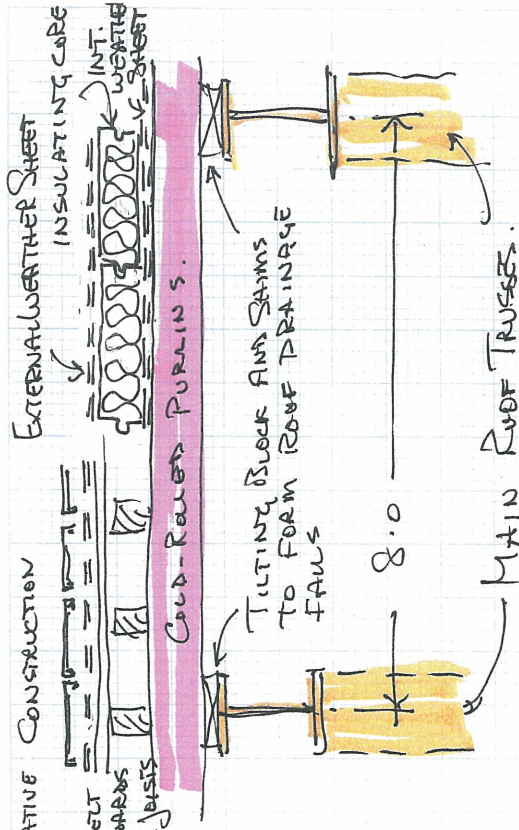 ATIVE CONSTRUCTION
EXTERNAL WEATHER SHEET
INSULATING CORE
INT.
WEATHE
SHEET
ELT
OARDS
JOISTS
COLD-ROLLED PURLINS.
TILTING BLOCK AND SHIMS
TO FORM ROOF DRAINAGE
FALLS
8.0
MAIN ROOF TRUSSES.